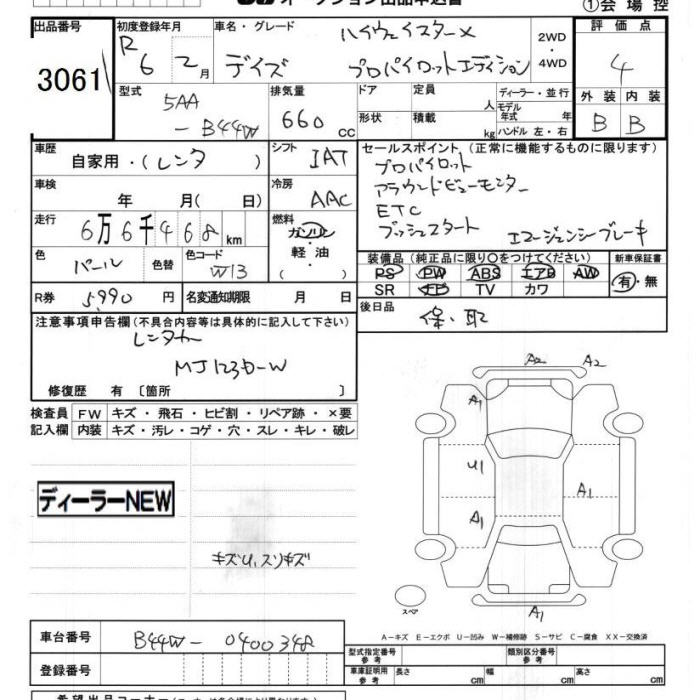 オークション出品申込書
①会場控
出品番号 3061
初度登録年月 R 6 2月
車名・グレード デイズ ハイウェイスターX プロパイロットエディション
2WD・4WD
評価点 4
型式 5AA-B44W
排気量 660 cc
ドア 形状
定員 人 積載 kg
ディーラー・並行
モデル年式 年
ハンドル 左・右
外装 B 内装 B
車歴 自家用・(レンタ)
シフト IAT
セールスポイント (正常に機能するものに限ります)
プロパイロット
アラウンドビューモニター
ETC
プッシュスタート エマージェンシーブレーキ
車検 年 月( 日)
冷房 AAC
走行 6万6千468 km
燃料 ガソリン・軽油・( )
色 パール 色替 色コード W13
装備品 (純正品に限り○をつけてください) 新車保証書
PS PW ABS エアB AW 有・無
SR ナビ TV カワ
R券 5,990 円 名変通知期限 月 日
後日品 保・取
注意事項申告欄 (不具合内容等は具体的に記入して下さい)
レンタカー
MJ123D-W
修復歴 有 〔箇所 〕
検査員記入欄 FW キズ・飛石・ヒビ割・リペア跡・×要
内装 キズ・汚レ・コゲ・穴・スレ・キレ・破レ
A2 A2
A1
U1
A1
A1
A1
スペア
ディーラーNEW
キズU、スリキズ
A-キズ E-エクボ U-凹み W-補修跡 S-サビ C-腐食 XX-交換済
車台番号 B44W-0400348
登録番号
型式指定番号 参考 類別区分番号 参考
車庫証明用 参考 長さ cm 幅 cm 高さ cm
希望出品コーナー